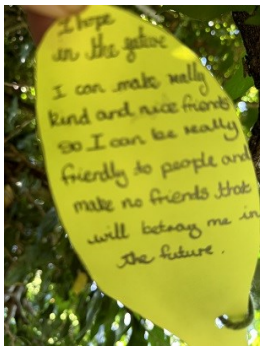 I hope
in the future
I can make really
kind and nice friends
so I can be really
friendly to people and
make no friends that
will betray me in
the future.